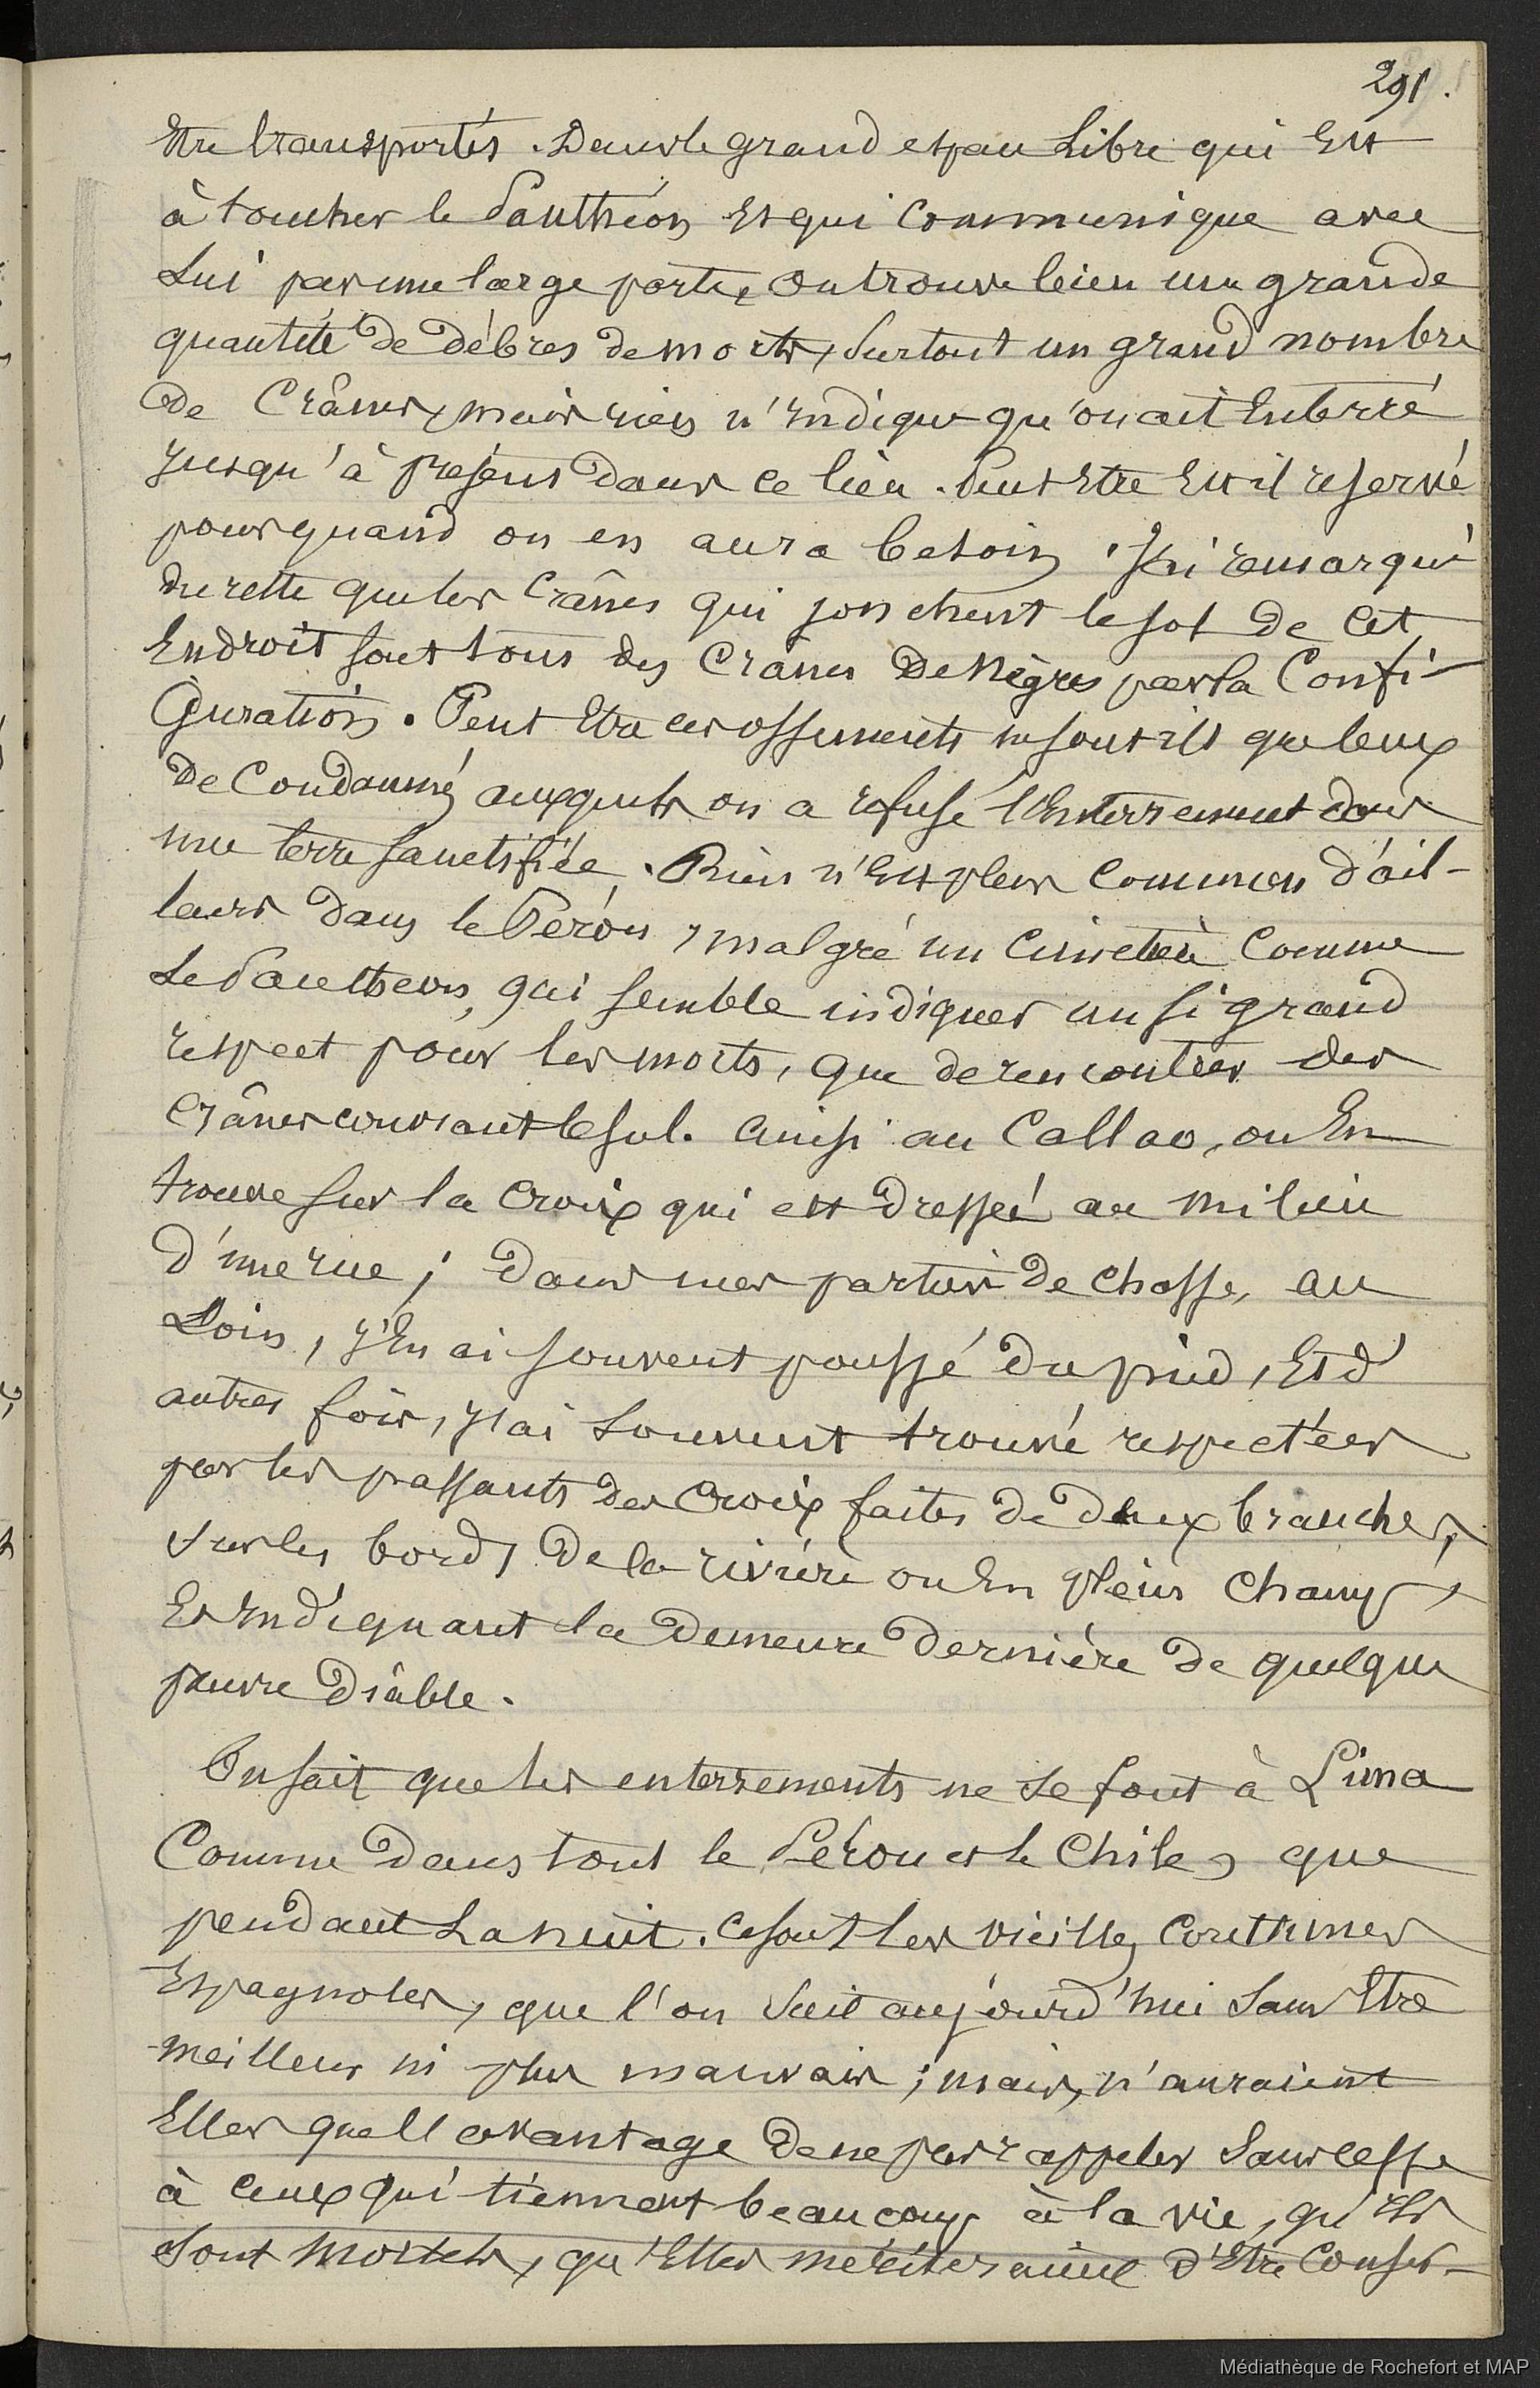 291.
Etre transportés. Dans le grand espace Libre qui Est
à toucher le Panthéon Et qui Communique avec
Lui par une large porte, on trouve bien une grande
quantité de débres de morts, Surtout un grand nombre
de Crânes, mais rien n'Endique qu'on ait Enterré
jusqu'à présent dans ce lieu. Peut Etre Est il reservé
pour quand on en aura besoin. J'ai remarqué
du reste que les Crânes qui jonchent le sol de Cet
Endroit sont tous des Crânes De Nègres par la Confi-
Guration. Peut Etre ces ossements ne sont ils que ceux
De Condamnés auxquels on a refusé l'Enterrement dans
une terre sanctifiée. Rien n'Est plus Commun d'ail-
leurs Dans le Pérou, malgré un Cimetière Comme
Le Panthéon, qui semble indiquer un si grand
respect pour les morts, que de rencontrer des
Crânes couvrant le sol. Ainsi au Callao, on En
trouve sur la Croix qui est Dressée au milieu
D'une rue; Dans mes parties De chasse, au
Loin, j'En ai souvent poussé Du pied, Et d'
autres fois, j'ai Souvent trouvé respectées
par les passants Des Croix faites De Deux branches,
Sur les bords De la rivière ou En plein Champ,
Et Endiquant la Demeure Dernière De quelque
pauvre Diâble.
On sait que les enterrements ne se font à Lima
Comme Dans tout le Pérou et le Chile, que
pendant La nuit. Ce sont les vieilles Couthumes
Espagnoles, que l'on Suit aujourd'hui Sans Etre
meilleur ni plus mauvais; mais, n'auraient
Elles que ll avantage De ne pas rappeler Sans cesse
à Ceux qui tiennent beaucoup à la vie, qu'Ils
Sont Mortels, qu'Elles mériteraient d'Etre Conser-
Médiathèque de Rochefort et MAP